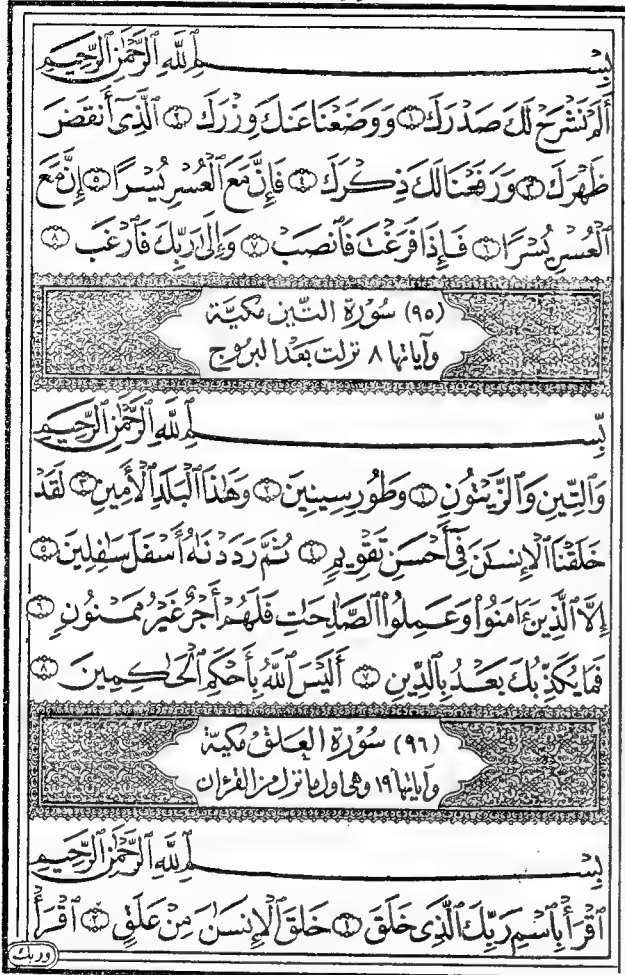 بِسْمِ ٱللَّهِ ٱلرَّحْمَٰنِ ٱلرَّحِيمِ
أَلَمْ نَشْرَحْ لَكَ صَدْرَكَ ١ وَوَضَعْنَا عَنكَ وِزْرَكَ ٢ ٱلَّذِىٓ أَنقَضَ
ظَهْرَكَ ٣ وَرَفَعْنَا لَكَ ذِكْرَكَ ٤ فَإِنَّ مَعَ ٱلْعُسْرِ يُسْرًا ٥ إِنَّ مَعَ
ٱلْعُسْرِ يُسْرًا ٦ فَإِذَا فَرَغْتَ فَٱنصَبْ ٧ وَإِلَىٰ رَبِّكَ فَٱرْغَب ٨
(٩٥) سُورَة التِّين مَكيَّة
وآياتها ٨ نزلت بَعْدَ البرُوج
بِسْمِ ٱللَّهِ ٱلرَّحْمَٰنِ ٱلرَّحِيمِ
وَٱلتِّينِ وَٱلزَّيْتُونِ ١ وَطُورِ سِينِينَ ٢ وَهَٰذَا ٱلْبَلَدِ ٱلْأَمِينِ ٣ لَقَدْ
خَلَقْنَا ٱلْإِنسَٰنَ فِىٓ أَحْسَنِ تَقْوِيمٍ ٤ ثُمَّ رَدَدْنَٰهُ أَسْفَلَ سَٰفِلِينَ ٥
إِلَّا ٱلَّذِينَ ءَامَنُوا۟ وَعَمِلُوا۟ ٱلصَّٰلِحَٰتِ فَلَهُمْ أَجْرٌ غَيْرُ مَمْنُونٍ ٦
فَمَا يُكَذِّبُكَ بَعْدُ بِٱلدِّينِ ٧ أَلَيْسَ ٱللَّهُ بِأَحْكَمِ ٱلْحَٰكِمِينَ ٨
(٩٦) سُورَة العَلق مَكيَّة
وآياتها ١٩ وهى اول ما نزل من القرآن
بِسْمِ ٱللَّهِ ٱلرَّحْمَٰنِ ٱلرَّحِيمِ
ٱقْرَأْ بِٱسْمِ رَبِّكَ ٱلَّذِى خَلَقَ ١ خَلَقَ ٱلْإِنسَٰنَ مِنْ عَلَقٍ ٢ ٱقْرَأْ
وربك